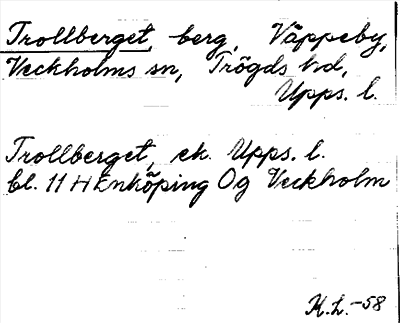 Trollberget, berg, Väppeby,
Veckholms sn, Trögds hd,
Upps. l.
Trollberget, ek. Upps. l.
bl. 11 H Enköping Og Veckholm
K.L.-58